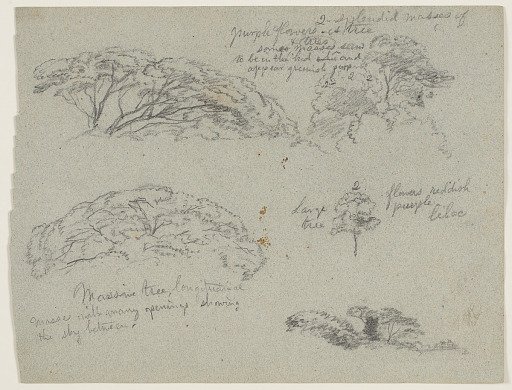 2 - Splendid masses of
purple flowers - a tree
2 trees
some masses seem
to be in the and
appear greenish
2
2
2
Large
tree
flowers reddish
purple
lilac
Massive tree, longitudinal
masses with many openings showing
the sky between.